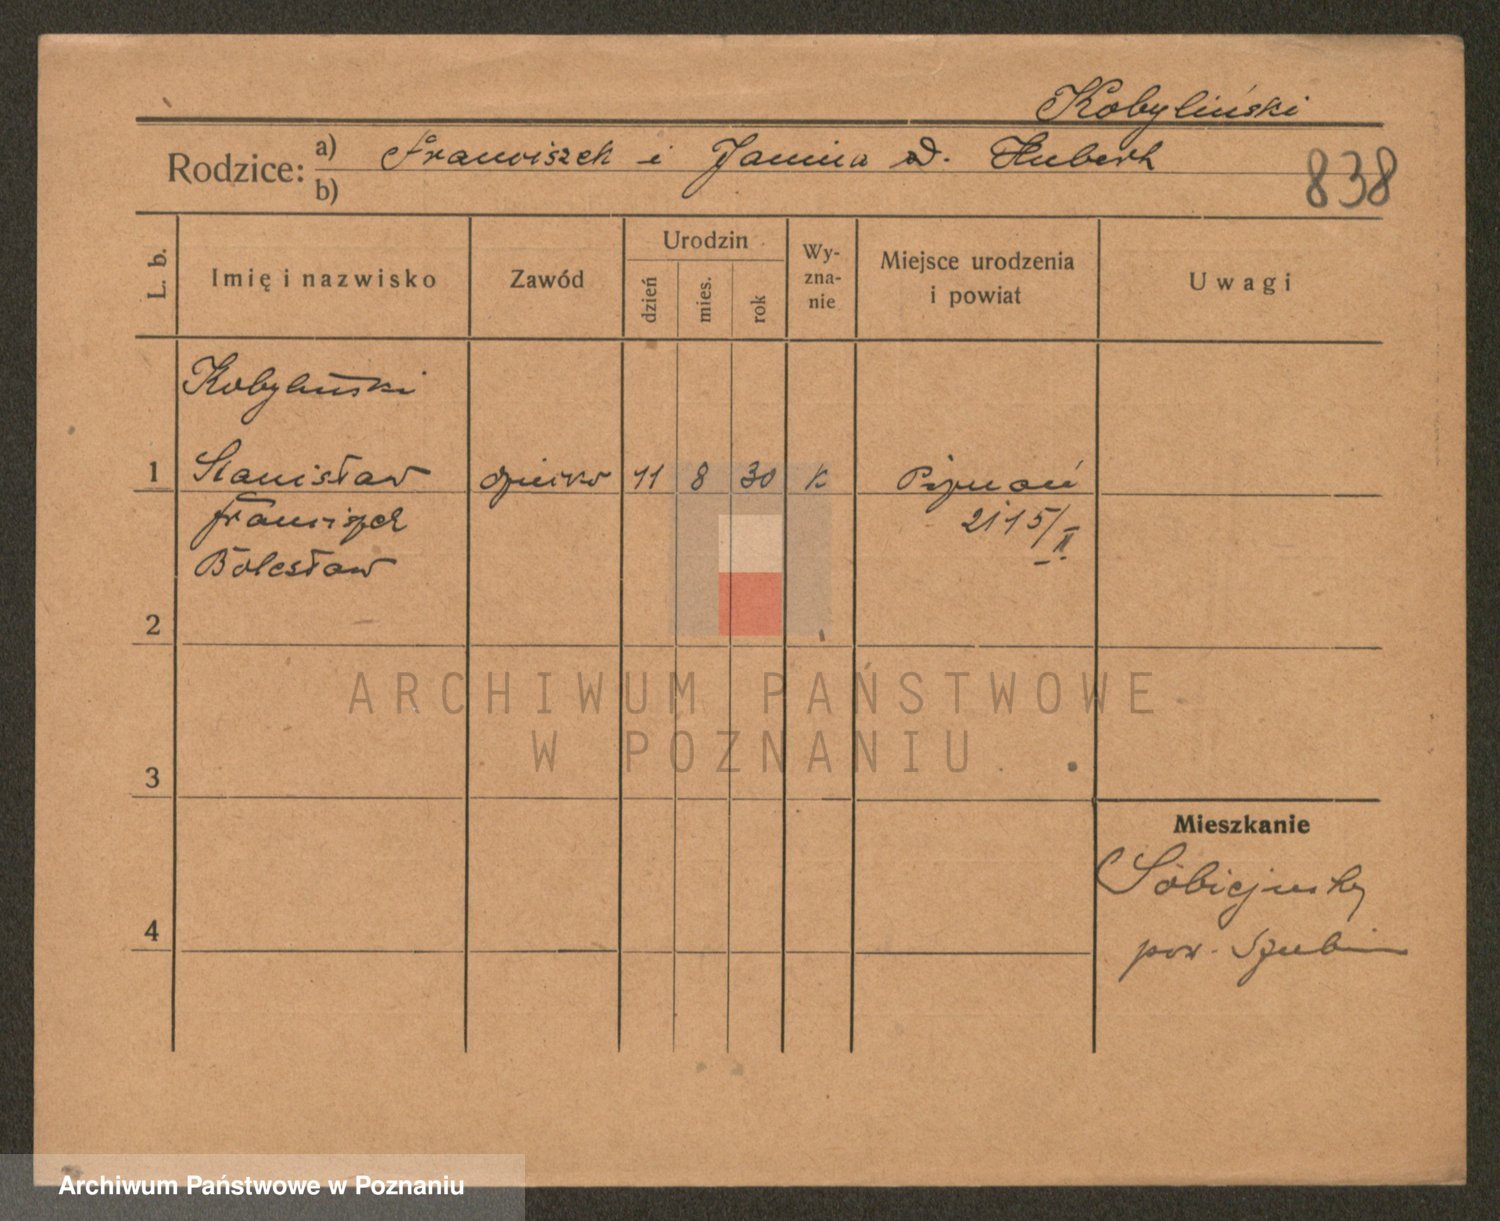 Kobyliński
Rodzice: a) Franciszek i Janina d. Hubert
b)
838
L. b.
Imię i nazwisko
Zawód
Urodzin
dzień
mies.
rok
Wy-
zna-
nie
Miejsce urodzenia
i powiat
Uwagi
Kobyliński
1 Stanisław dziecko 11 8 30 k Poznań
Franciszek 2115/II.
Bolesław
2
ARCHIWUM PAŃSTWOWE
W POZNANIU
3
Mieszkanie
4
pow. Szubin
Archiwum Państwowe w Poznaniu